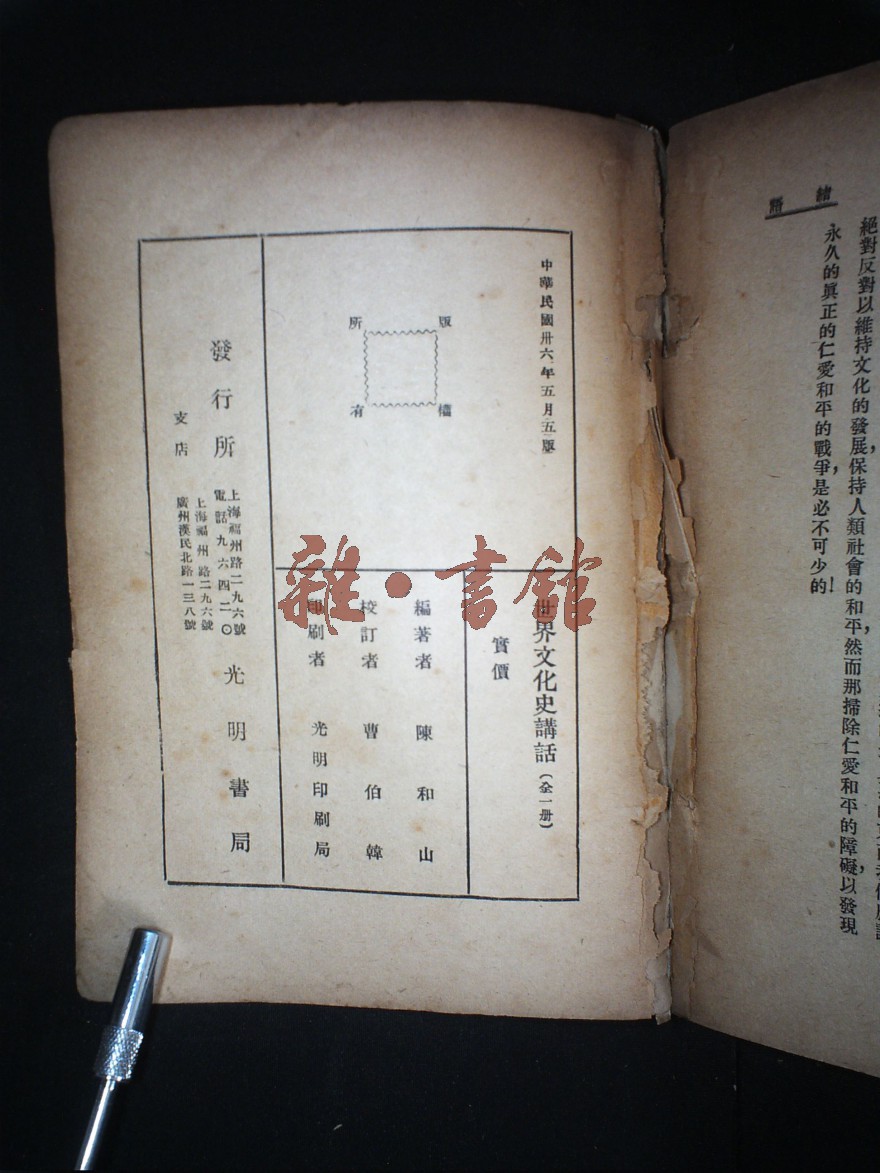 緒 語
絕對反對以維持文化的發展，保持人類社會的和平，然而那掃除仁愛和平的障礙，以發現
永久的眞正的仁愛和平的戰爭，是必不可少的！
中華民國卅六年五月五版
版權所有
世界文化史講話（全一册）
實價
編著者 陳和山
校訂者 曹伯韓
印刷者 光明印刷局
發行所 光明書局
上海福州路二九六號
電話九六四二〇
支店
上海福州路二九六號
廣州漢民北路一三八號
雜·書館